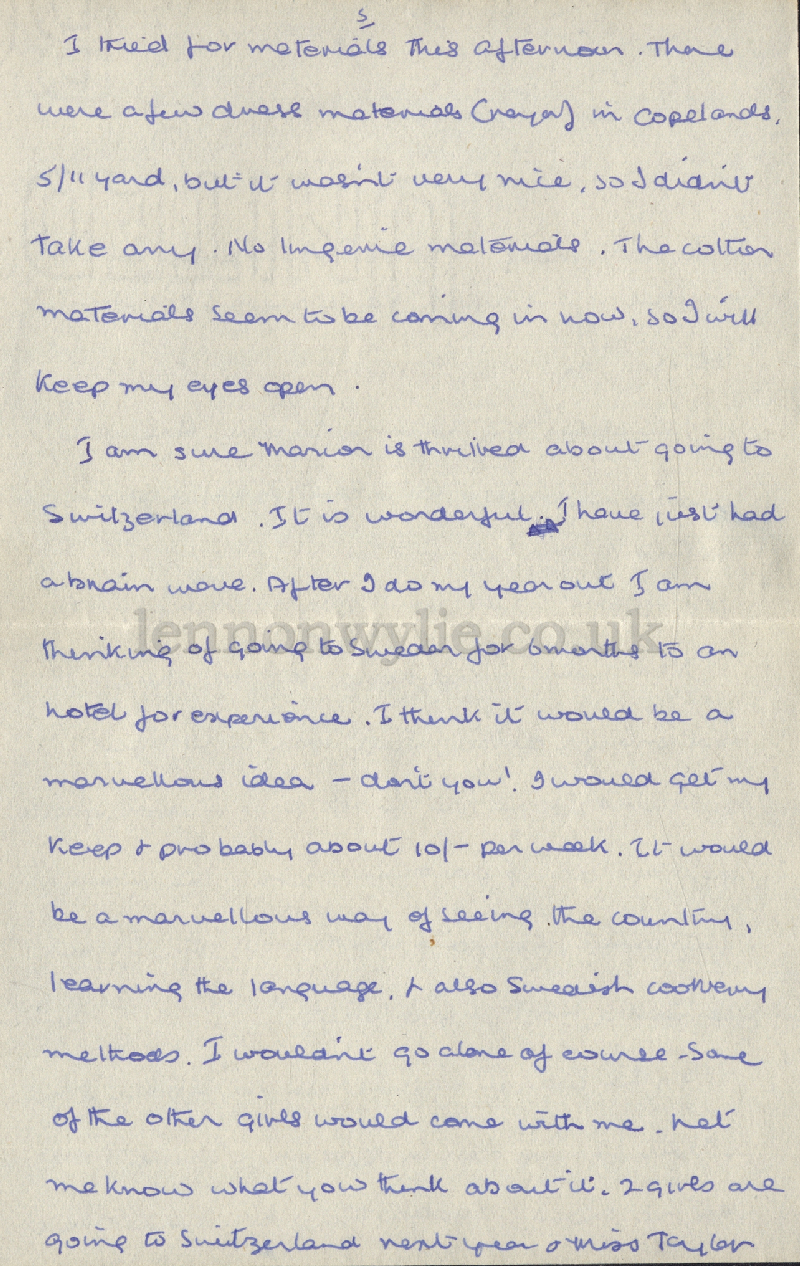 5
I tried for materials this afternoon. There
were a few dress materials (rayon) in Copelands,
5/11 yard, but it wasn't very nice, so I didn't
take any. No lingerie materials. The cotton
materials seem to be coming in now, so I will
keep my eyes open.
I am sure Marion is thrilled about going to
Switzerland. It is wonderful. I have just had
a brain wave. After I do my year out I am
lennonwylie.co.uk
thinking of going to Sweden for 6 months to an
hotel for experience. I think it would be a
marvellous idea - don't you! I would get my
keep & probably about 10/- per week. It would
be a marvellous way of seeing the country,
learning the language, & also Swedish cookery
methods. I wouldn't go alone of course - some
of the other girls would come with me. Let
me know what you think about it. 2 girls are
going to Switzerland next year & Miss Taylor